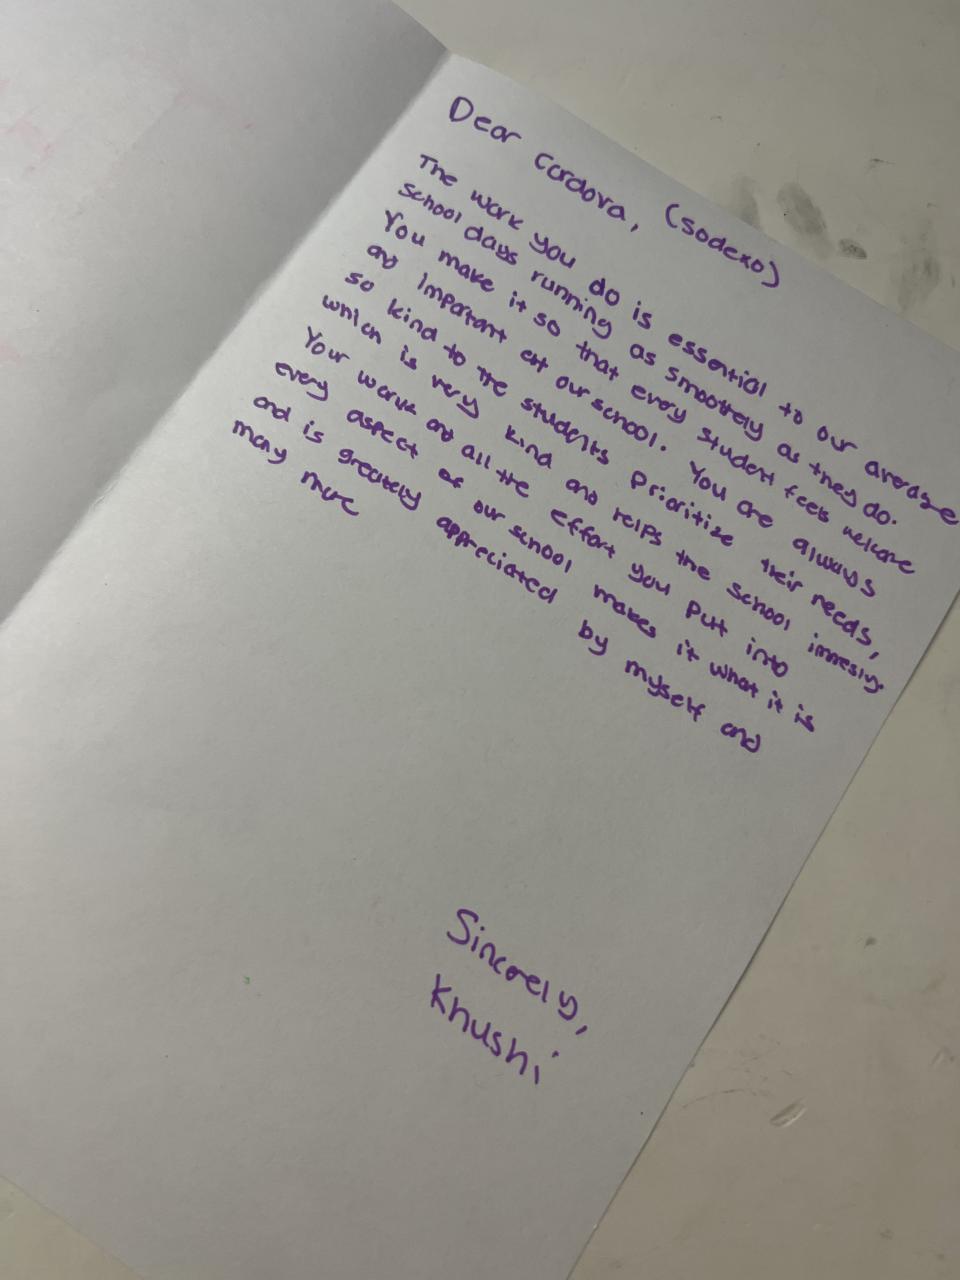 Dear Cordova, (sodexo)
The work you do is essential to our average
school days running as smoothely as they do.
You make it so that every student feels welcome
and important at our school. You are always
so kind to the students prioritize their needs,
which is very kind and helps the school immesly.
Your work and all the effort you put into
every aspect of our school makes it what it is
and is greately appreciated by myself and
many more
Sincerely,
Khushi